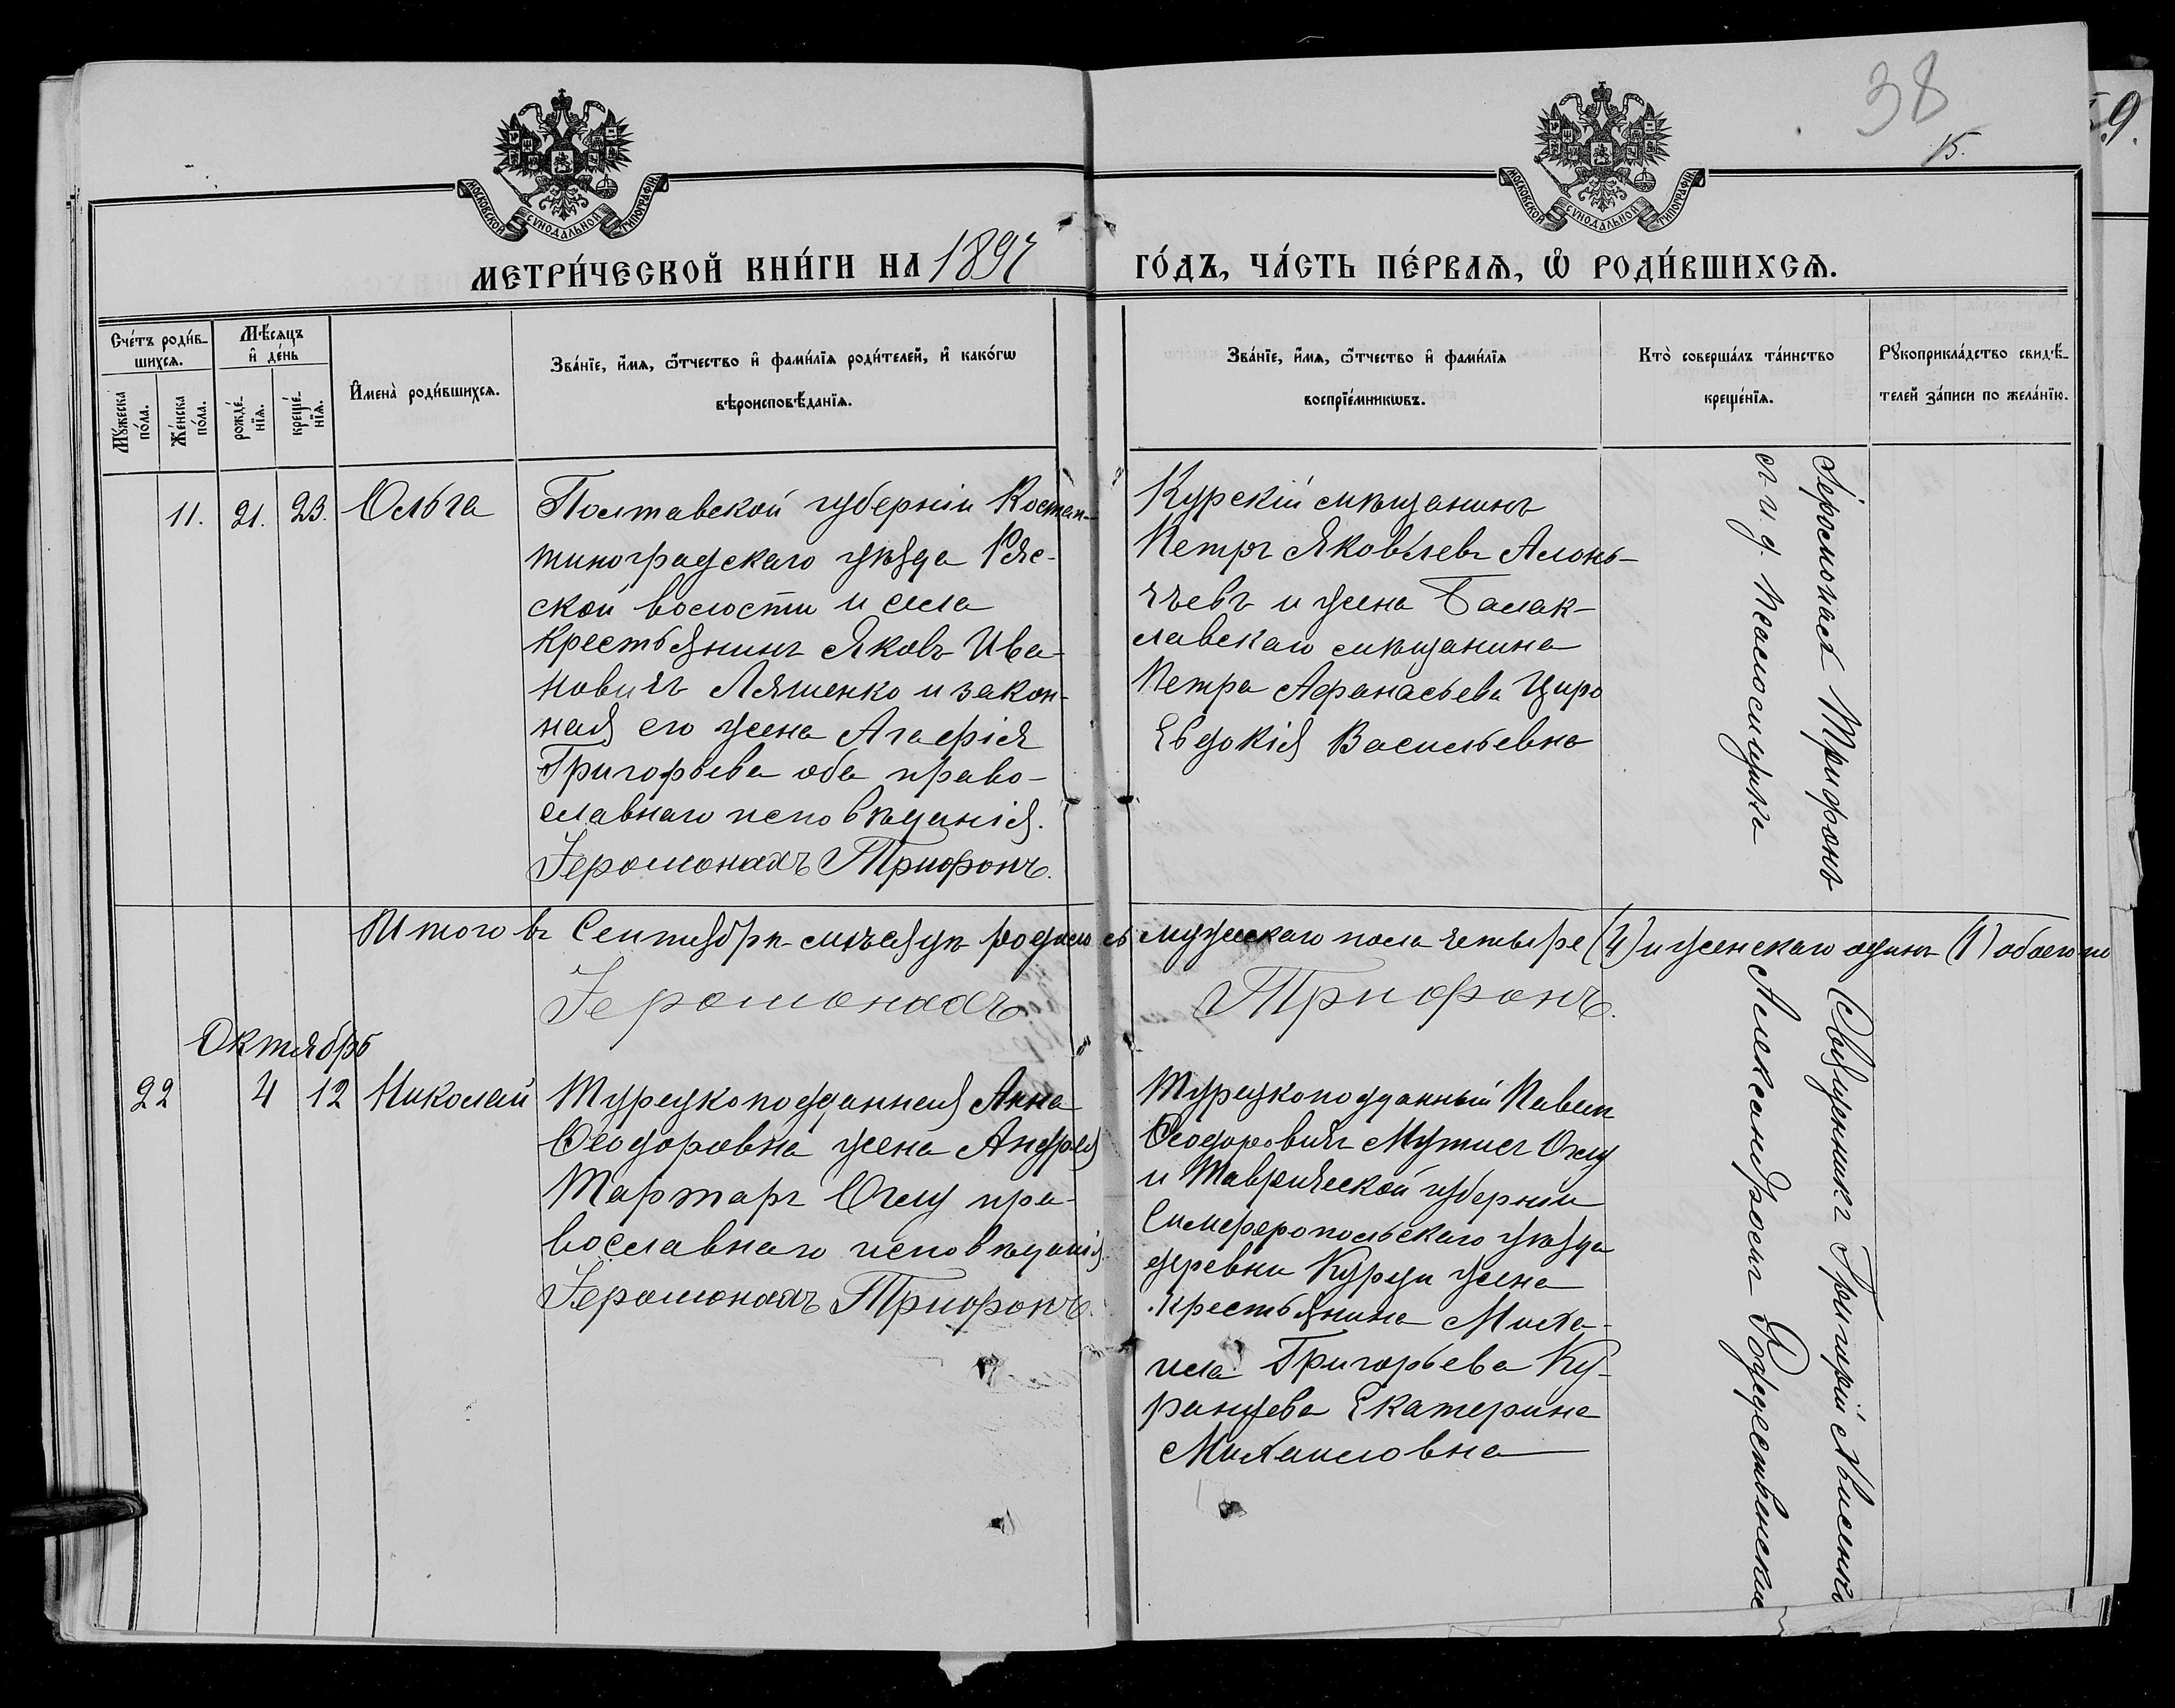 38
15.
9.
МОСКОВСКОЙ СѴНОДАЛЬНОЙ ТИПОГРАФІИ
МОСКОВСКОЙ СѴНОДАЛЬНОЙ ТИПОГРАФІИ
МЕТРИ́ЧЕСКОЙ КНИ́ГИ НА 1897 ГО́ДЪ, ЧА́СТЬ ПЕ́РВАѦ, Ѡ҆ РОДИ́ВШИХСѦ.
Сче́тъ роди́в-
шихсѧ.
Мꙋ́жеска по́ла.
Же́нска по́ла.
Мѣ́сѧцъ
и҆ де́нь
рожде́-
нїѧ.
креще́-
нїѧ.
И҆мена̀ роди́вшихсѧ.
Зва́нїе, и҆́мѧ, ѻ҆́тчество и҆ фами́лїѧ роди́телей, и҆ како́гѡ
вѣроисповѣ́данїѧ.
Зва́нїе, и҆́мѧ, ѻ҆́тчество и҆ фами́лїѧ
воспрїе́мникѡвъ.
Кто̀ соверша́лъ та́инство
креще́нїѧ.
Рꙋкоприкла́дство свидѣ́-
телей за́писи по жела́нїю.
11. 21. 23. Ольга
Полтавской губерніи Костан-
тиноградскаго уѣзда Ряс-
ской волости и села
крестьянинъ Яковъ Ива-
новичъ Ляшенко и закон-
ная его жена Агафія
Григорьева оба право-
славнаго исповѣданія.
Іеромонахъ Трифонъ.
Курскій мѣщанинъ
Петръ Яковлевъ
и жена Балак-
лавскаго мѣщанина
Петра Афанасьева Циро
Евдокія Васильевна
Іеромонахъ Трифонъ
и. д. Псаломщикъ
Итого въ Сентябрѣ мѣсяцѣ родилось мужескаго пола четыре (4) и женскаго одинъ (1) обоего по
Іеромонахъ Трифонъ.
Октябрь
22 4 12 Николай
Турецкоподданная Анна
Ѳеодоровна жена Андрея
Тартаръ Оглу пра-
вославнаго исповѣданія.
Іеромонахъ Трифонъ.
Турецкоподданный Павелъ
Ѳеодоровичъ Оглу
и Таврической губерніи
Симферопольскаго уѣзда
деревни Курци жена
крестьянина Миха-
ила Григорьева Ку-
ранцева Екатерина
Михаиловна
Священникъ Григорій
Александромъ Рождественскимъ